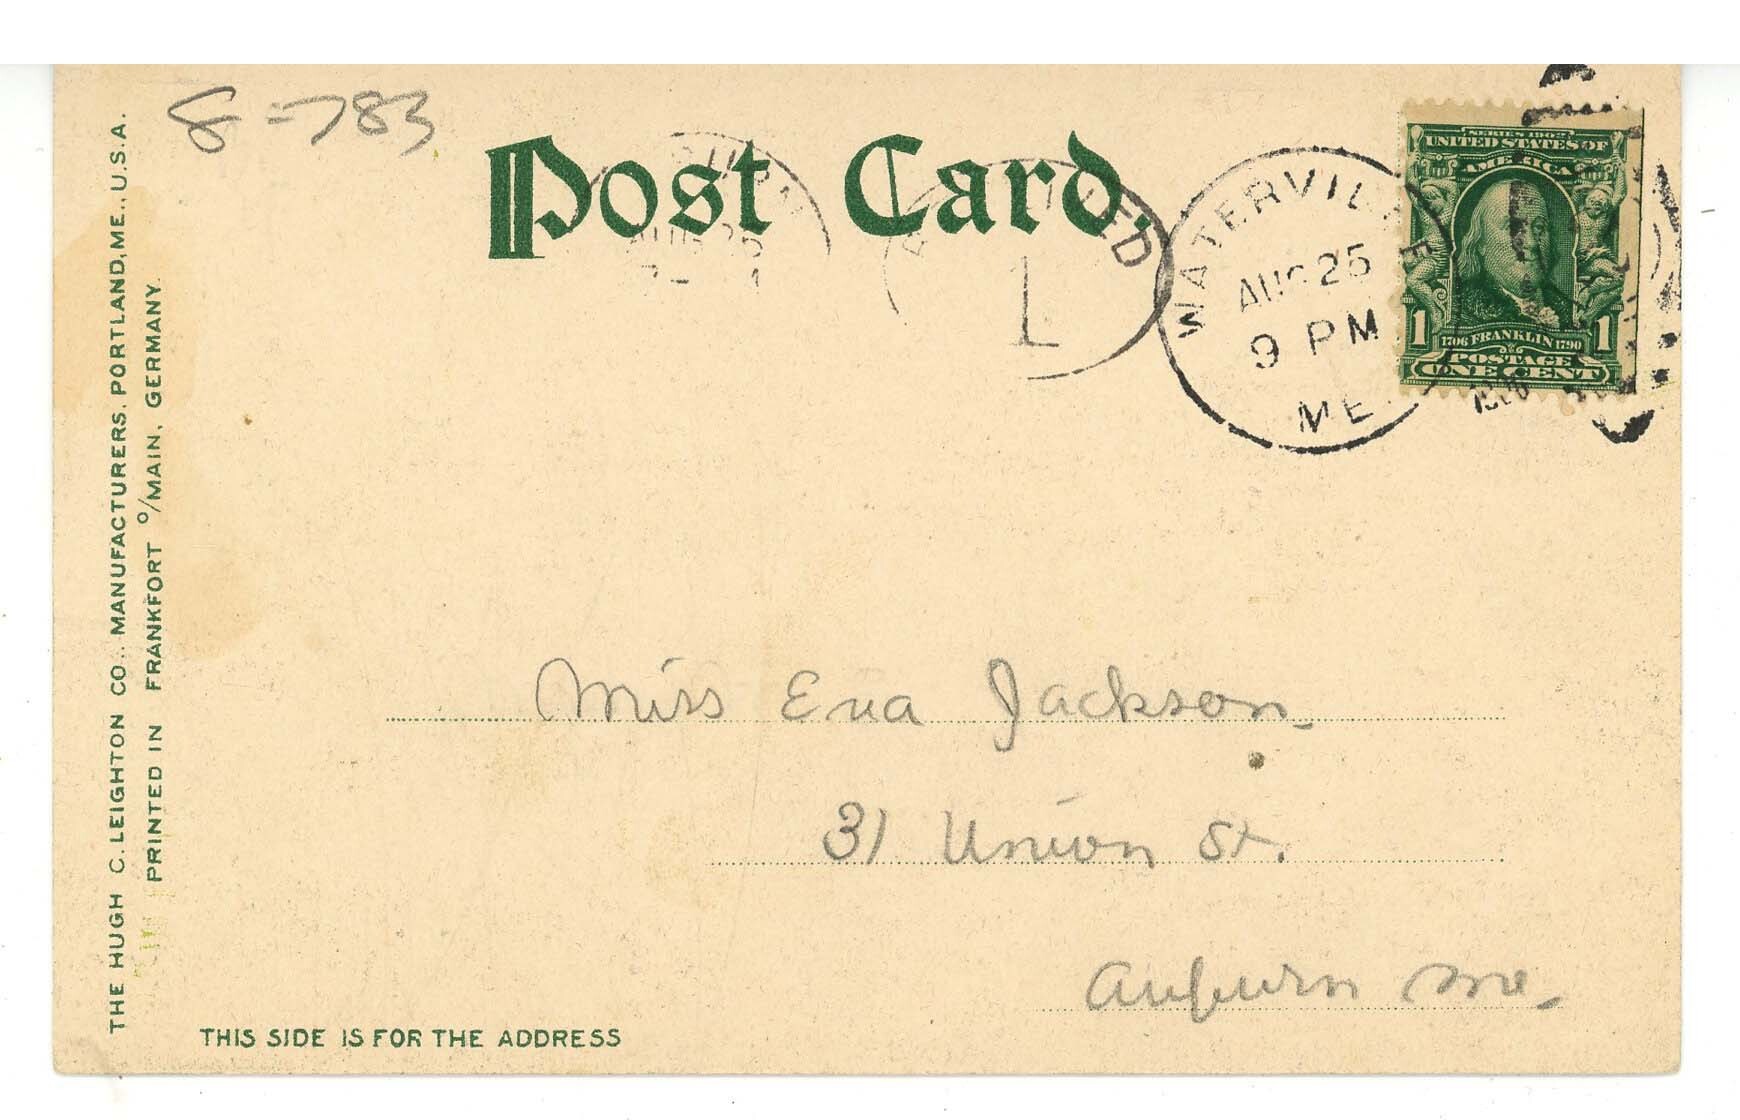 8-783
Post Card.
AUG 25
RECEIVED
1
WATERVILLE
AUG 25
9 PM
ME.
SERIES 1902
UNITED STATES OF
AMERICA
1 1706 FRANKLIN 1790 1
POSTAGE
ONE CENT
THE HUGH C. LEIGHTON CO.. MANUFACTURERS. PORTLAND, ME., U.S.A.
PRINTED IN FRANKFORT O/MAIN, GERMANY.
Miss Eva Jackson
31 Union St.
Auburn Me.
THIS SIDE IS FOR THE ADDRESS